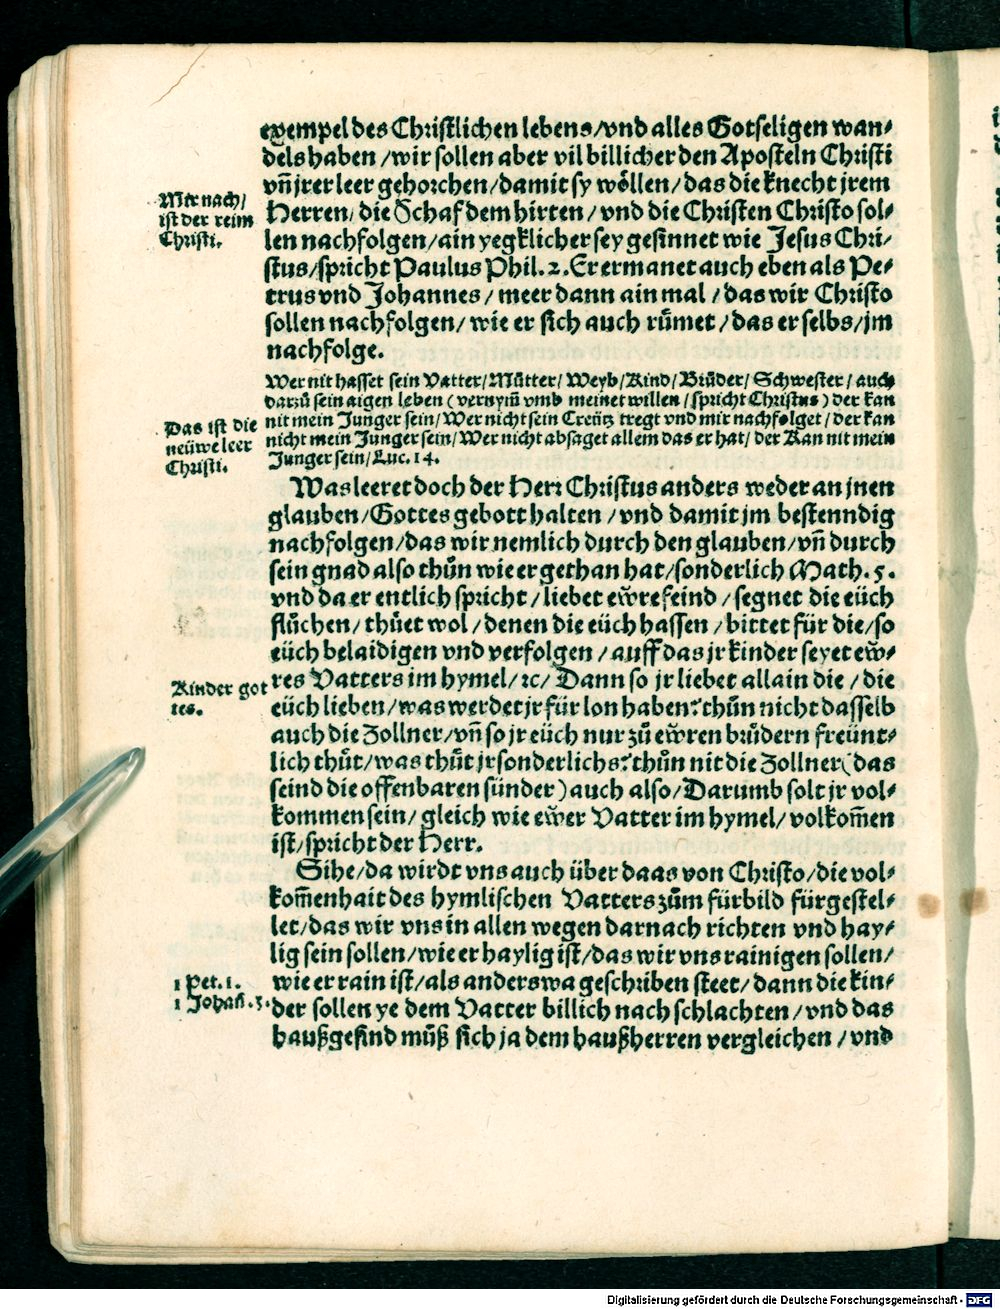 exempel des Christlichen lebens/vnd alles Gotseligen wan⸗
dels haben/wir sollen aber vil billicher den Aposteln Christi
vñ jrer leer gehorchen/damit sy wöllen/das die knecht jrem
Mir nach/
ist der reim
Christi.
Herren/die Schaf dem hirten/vnd die Christen Christo sol⸗
len nachfolgen/ain yegklicher sey gesinnet wie Jesus Chri⸗
stus/spricht Paulus Phil. 2. Er ermanet auch eben als Pe⸗
trus vnd Johannes/meer dann ain mal/das wir Christo
sollen nachfolgen/wie er sich auch rümet/das er selbs/jm
nachfolge.
Wer nit hasset sein Vatter/Mütter/Weyb/Kind/Brüder/Schwester/auch
darzů sein aigen leben (vernym̃ vmb meinet willen/spricht Christus) der kan
nit mein Junger sein/Wer nicht sein Creütz tregt vnd mir nachfolget/der kan
Das ist die
neüwe leer
Christi.
nicht mein Junger sein/Wer nicht absaget allem das er hat/der Kan nit mein
Junger sein/Luc. 14.
Was leeret doch der Herr Christus anders weder an jnen
glauben/Gottes gebott halten/vnd damit jm bestenndig
nachfolgen/das wir nemlich durch den glauben/vñ durch
sein gnad also thůn wie er gethan hat/sonderlich Math. 5.
vnd da er entlich spricht/liebet eẅre feind/segnet die eüch
flůchen/thůet wol/denen die eüch hassen/bittet für die/so
eüch belaidigen vnd verfolgen/auff das jr kinder seyet eẅ⸗
Kinder got
tes.
res Vatters im hymel/ꝛc/Dann so jr liebet allain die/die
eüch lieben/was werdet jr für lon haben? thůn nicht dasselb
auch die Zollner/vñ so jr eüch nur zů eẅren brüdern freünt⸗
lich thůt/was thůt jr sonderlichs? thůn nit die Zollner (das
seind die offenbaren sünder) auch also/Darumb solt jr vol⸗
kommen sein/gleich wie eẅer Vatter im hymel/volkom̃en
ist/spricht der Herr.
Sihe/da wirdt vns auch über daas von Christo/die vol⸗
kom̃enhait des hymlischen Vatters zům fürbild fürgestel⸗
let/das wir vns in allen wegen darnach richten vnd hay⸗
lig sein sollen/wie er haylig ist/das wir vns rainigen sollen/
1 Pet. 1.
1 Johañ. 3.
wie er rain ist/als anderswa geschriben steet/dann die kin⸗
der sollen ye dem Vatter billich nach schlachten/vnd das
haußgesind můß sich ja dem haußherren vergleichen/vnd
Digitalisierung gefördert durch die Deutsche Forschungsgemeinschaft - DFG